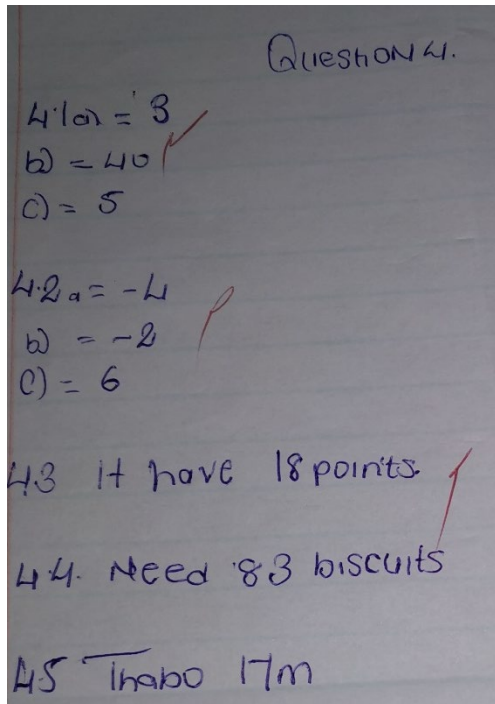 Question 4.
4.1a) = 3
b) = 40
c) = 5
4.2a = -4
b) = -2
c) = 6
4.3 It have 18 points.
4.4. Need 83 biscuits
4.5 Thabo 17m